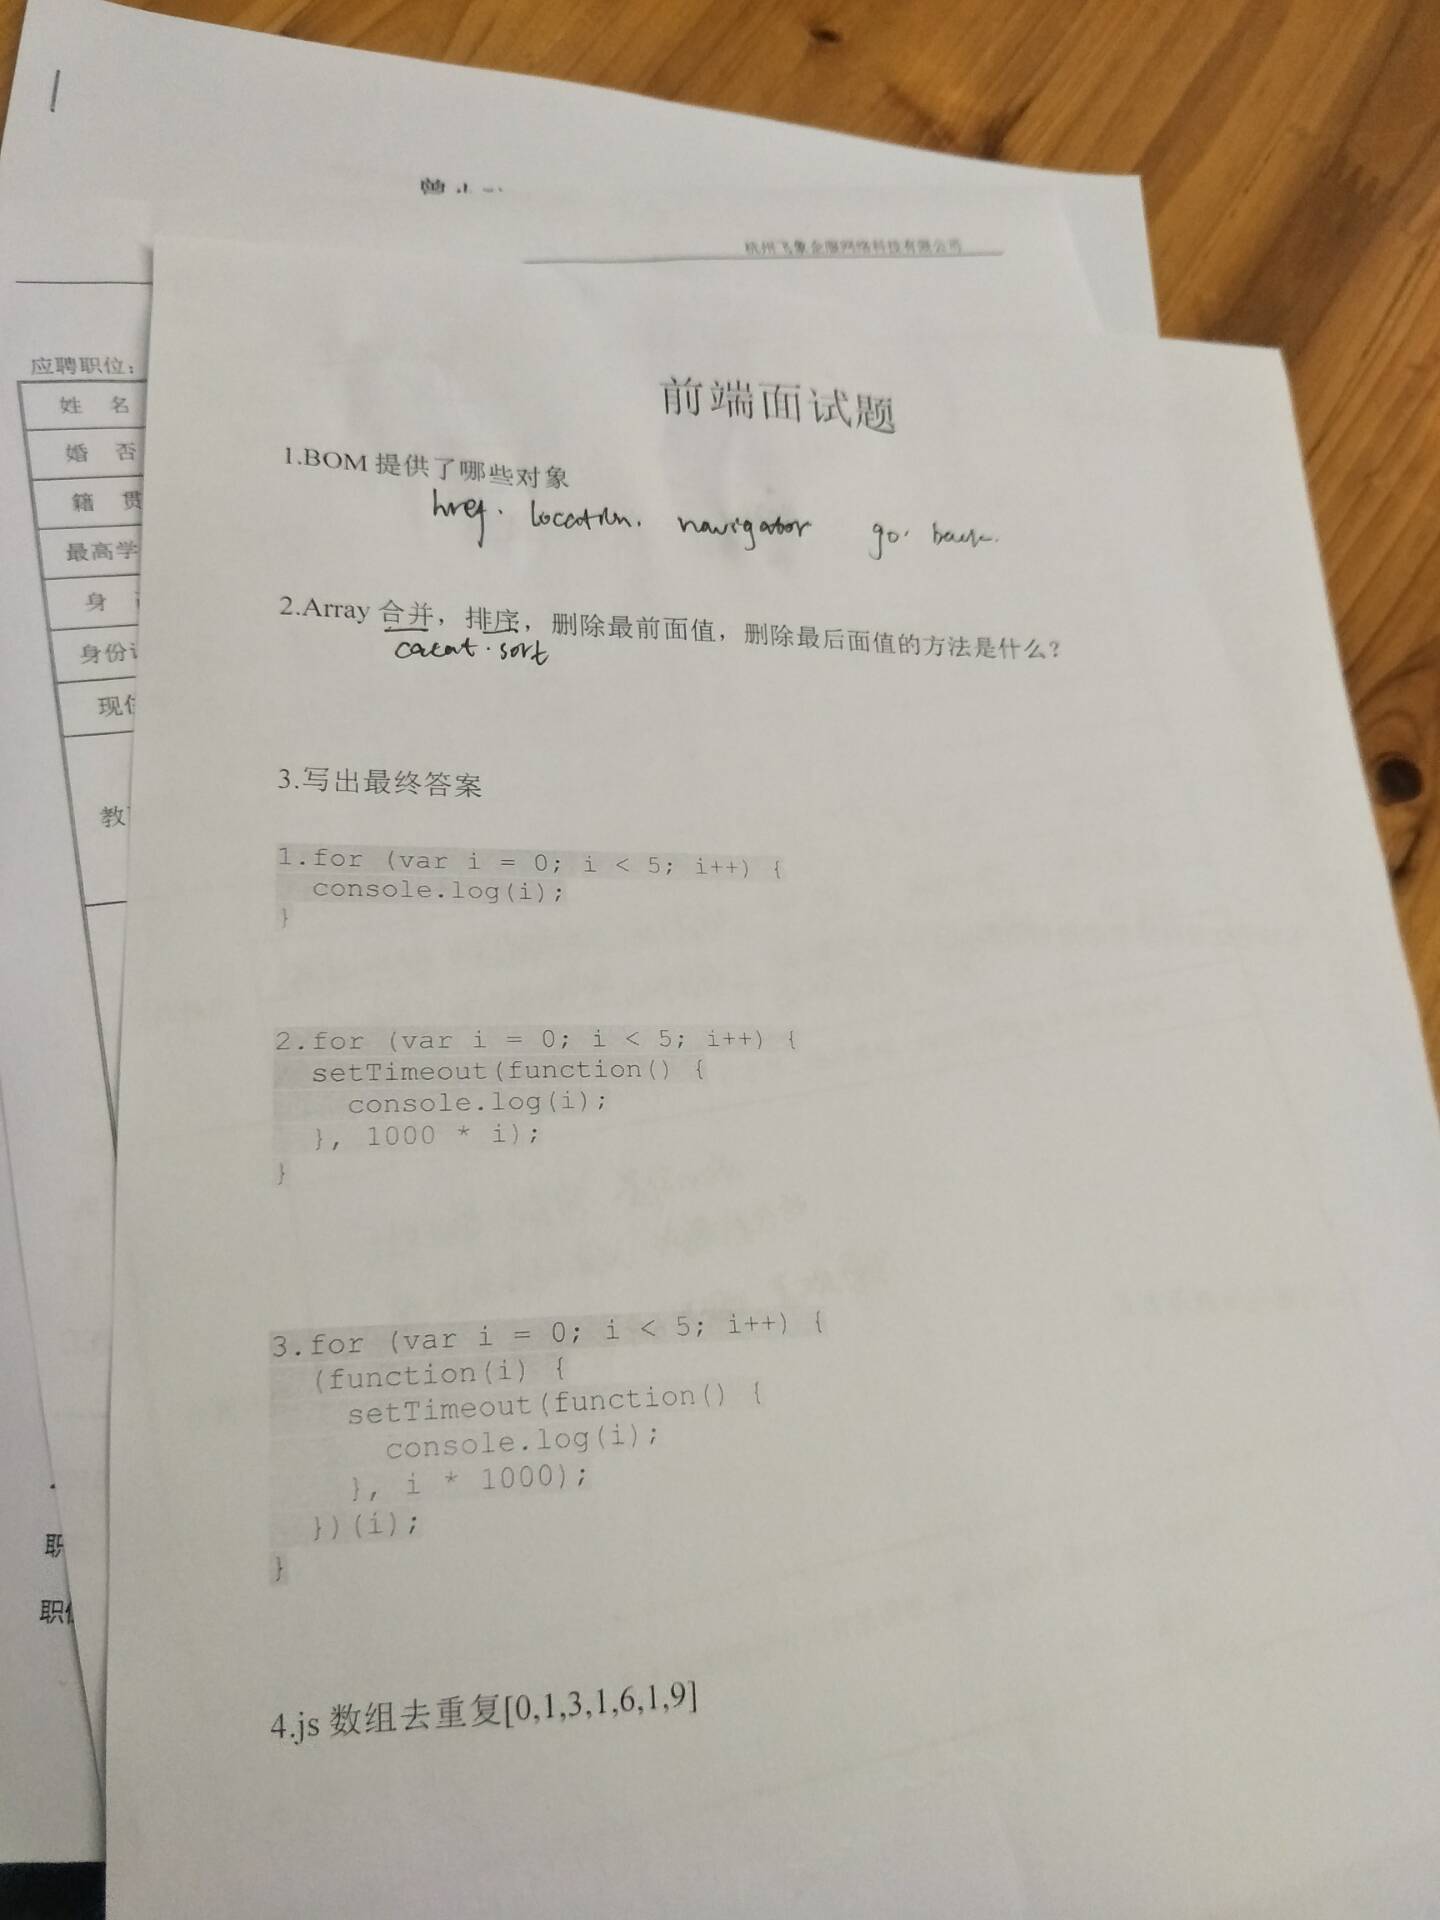 杭州飞象企服网络科技有限公司
应聘职位：
姓 名
婚 否
籍 贯
最高学
身
身份证
现住
教
职
职
前端面试题
1.BOM 提供了哪些对象
href. location. navigator go. back.
2.Array 合并，排序，删除最前面值，删除最后面值的方法是什么？
cacat. sort
3.写出最终答案
1.for (var i = 0; i < 5; i++) {
console.log(i);
}
2.for (var i = 0; i < 5; i++) {
setTimeout(function() {
console.log(i);
}, 1000 * i);
}
3.for (var i = 0; i < 5; i++) {
(function(i) {
setTimeout(function() {
console.log(i);
}, i * 1000);
})(i);
}
4.js 数组去重复[0,1,3,1,6,1,9]